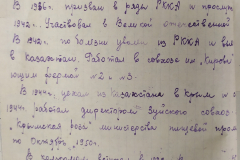 В 1936г. призван в ряды РККА и прослужил
1942г. Участвовал в Великой отечественной
В 1942г. по болезни уволен из РККА и был
в казахстан. Работал в совхозе им. Кирова
ющим фермой № 2 и № 3.
В 1944г. уехал из Казахстана в Крым и с
1944г. работал директором Зуйского совхоза
"Крымская роза" министерства пищевой пром
по Октябрь 1950г.